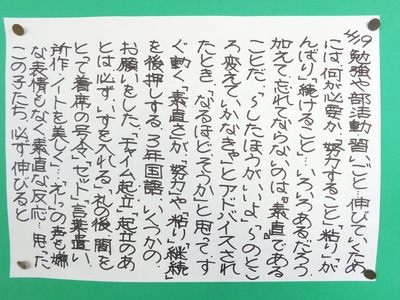 4/19 勉強や部活動、習いごと…伸びていくため
には、何が必要か。「努力すること」「粘り」「が
んばり」「続けること」…いろいろあるだろう。
加えて忘れてならないのは“素直”である
ことだ。「〜したほうがいいよ」「〜のとこ
ろ変えていかなきゃ」とアドバイスされ
たとき、「なるほど、そうか」と思って、す
ぐ動く「素直さ」が、「努力」や「粘り」「継続」
を後押しする。3年国語…いくつかの
お願いをした。「テイム起立」「起立のあ
とは必ず、いすを入れる」「礼の後、間を
とって着席の号令「セット」」「言葉遣い、
所作…イトを美しく」…「エーっ」の声も嫌
な表情もなく素直な反応…思った。
この子たち、必ず伸びると